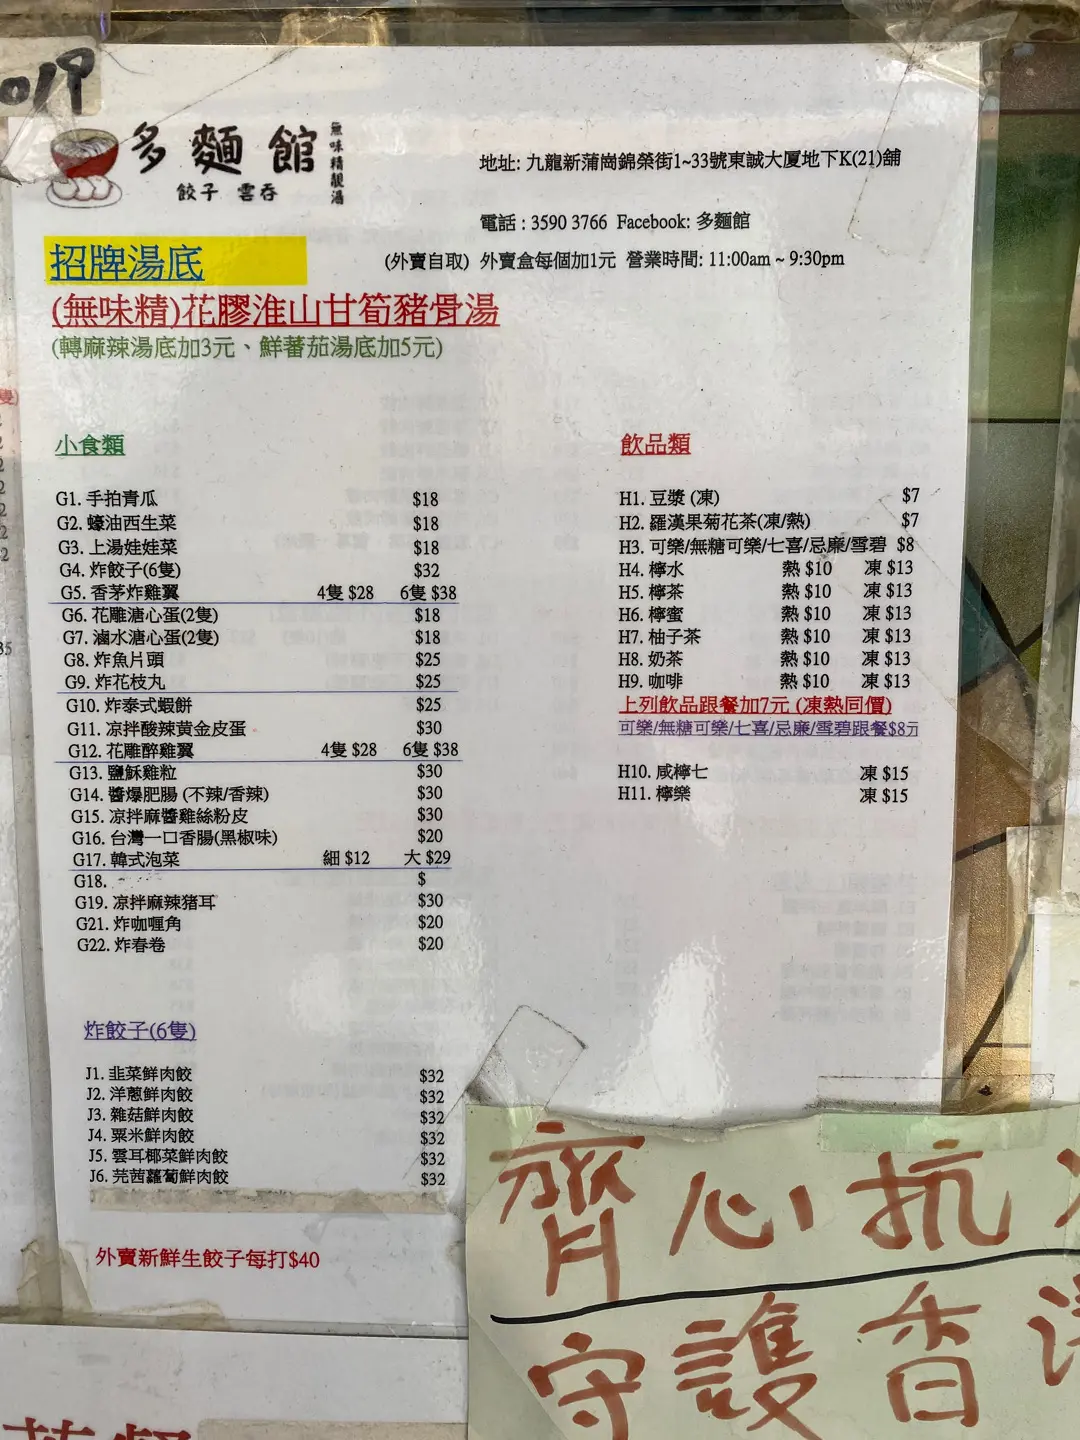 019
多麵館
無味精靚湯
餃子 雲吞
地址: 九龍新蒲崗錦榮街1~33號東誠大厦地下K(21)舖
電話 : 3590 3766 Facebook: 多麵館
(外賣自取) 外賣盒每個加1元 營業時間: 11:00am ~ 9:30pm
招牌湯底
(無味精)花膠淮山甘筍豬骨湯
(轉麻辣湯底加3元、鮮蕃茄湯底加5元)
小食類
G1. 手拍青瓜 $18
G2. 蠔油西生菜 $18
G3. 上湯娃娃菜 $18
G4. 炸餃子(6隻) $32
G5. 香茅炸雞翼 4隻 $28 6隻 $38
G6. 花雕溏心蛋(2隻) $18
G7. 滷水溏心蛋(2隻) $18
G8. 炸魚片頭 $25
G9. 炸花枝丸 $25
G10. 炸泰式蝦餅 $25
G11. 凉拌酸辣黄金皮蛋 $30
G12. 花雕醉雞翼 4隻 $28 6隻 $38
G13. 鹽穌雞粒 $30
G14. 醬爆肥腸 (不辣/香辣) $30
G15. 凉拌麻醬雞絲粉皮 $30
G16. 台灣一口香腸(黑椒味) $20
G17. 韓式泡菜 細 $12 大 $29
G18. $
G19. 凉拌麻辣猪耳 $30
G21. 炸咖喱角 $20
G22. 炸春卷 $20
飲品類
H1. 豆漿 (凍) $7
H2. 羅漢果菊花茶(凍/熱) $7
H3. 可樂/無糖可樂/七喜/忌廉/雪碧 $8
H4. 檸水 熱 $10 凍 $13
H5. 檸茶 熱 $10 凍 $13
H6. 檸蜜 熱 $10 凍 $13
H7. 柚子茶 熱 $10 凍 $13
H8. 奶茶 熱 $10 凍 $13
H9. 咖啡 熱 $10 凍 $13
上列飲品跟餐加7元 (凍熱同價)
可樂/無糖可樂/七喜/忌廉/雪碧跟餐$8元
H10. 咸檸七 凍 $15
H11. 檸樂 凍 $15
炸餃子(6隻)
J1. 韭菜鮮肉餃 $32
J2. 洋蔥鮮肉餃 $32
J3. 雜菇鮮肉餃 $32
J4. 粟米鮮肉餃 $32
J5. 雲耳椰菜鮮肉餃 $32
J6. 芫茜蘿蔔鮮肉餃 $32
外賣新鮮生餃子每打$40
齊心抗
守護香